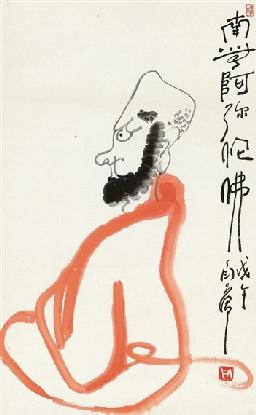 南無阿弥陀佛
戊午
衍庸